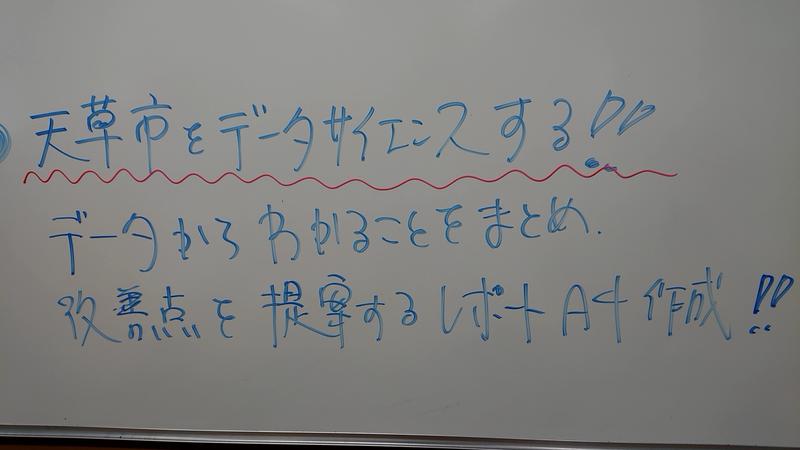 天草市をデータサイエンスする!!
データからわかることをまとめ.
改善点を提案するレポートA4作成!!